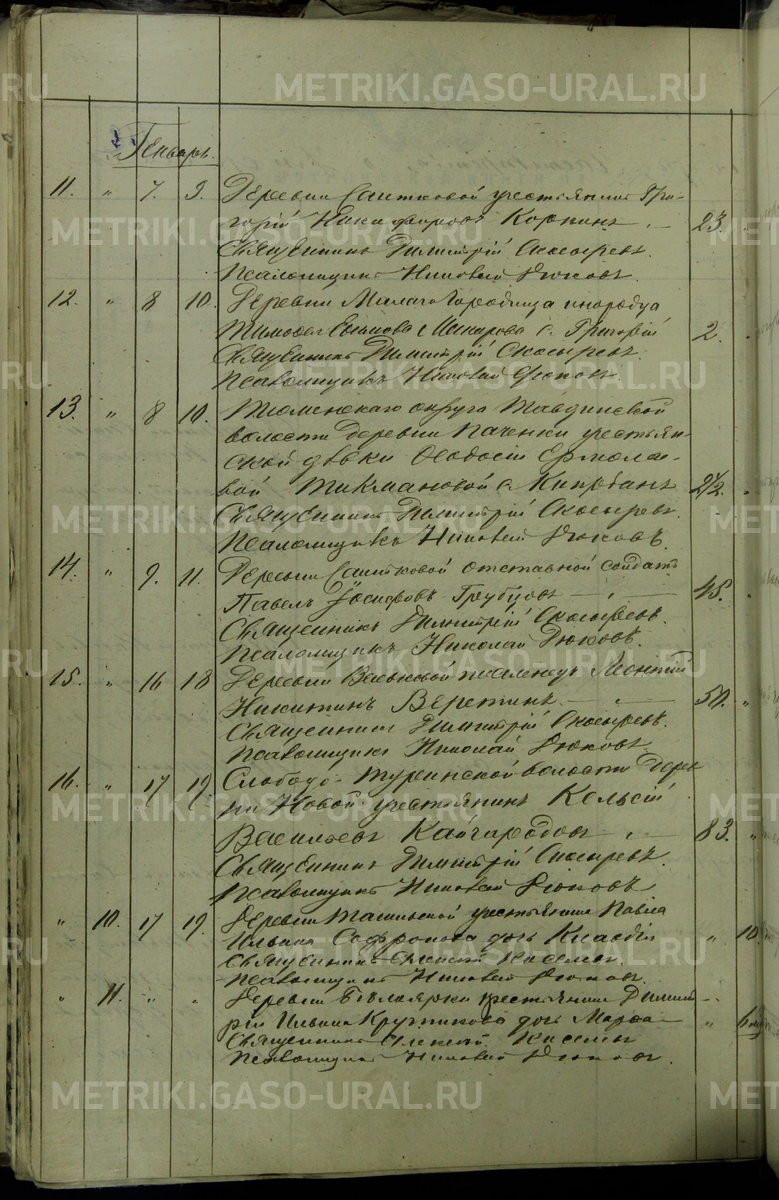 METRIKI.GASO-URAL.RU
Генварь.
11. " 7. 9. Деревни Саитковой крестьянинъ Гри-
горій Никифоровъ Коркинъ 23. "
Священникъ Димитрій
Псаломщикъ Николай Дюковъ.
12. " 8 10. Деревни Малаго Городища инородца
Тимофея Макарова с. Григорій 2. "
Священникъ Димитрій
Псаломщикъ Николай Дюковъ.
13. " 8 10. Тюменскаго округа Тавдинской
волости деревни Паченки крестьян-
ской дѣвки Ѳеодосіи Ермолае-
вой с. 2 1/2. "
Священникъ Димитрій
Псаломщикъ Николай Дюковъ.
14. " 9. 11. Деревни Саитковой отставной солдатъ
Павелъ Іосифовъ 45. "
Священникъ Димитрій
Псаломщикъ Николай Дюковъ.
15. " 16 18 Деревни поселенецъ Леонтій
Никитинъ Веретинъ 50. "
Священникъ Димитрій
Псаломщикъ Николай Дюковъ.
16. " 17 19. Слободо-Туринской волости дерев-
ни Новой крестьянинъ
Васильевъ Кайгародовъ 83. "
Священникъ Димитрій
Псаломщикъ Николай Дюковъ
" 10. 17 19. Деревни крестьянина Павла
Ильина Софронова дочь Клавдія " 10
Священникъ Алексій
Псаломщикъ Николай Дюковъ.
" 11. " " Деревни Бѣлоярки крестьянина Димит-
рія Ильина Кружикова дочь Марѳа " 6
Священникъ Алексій
Псаломщикъ Николай Дюковъ.